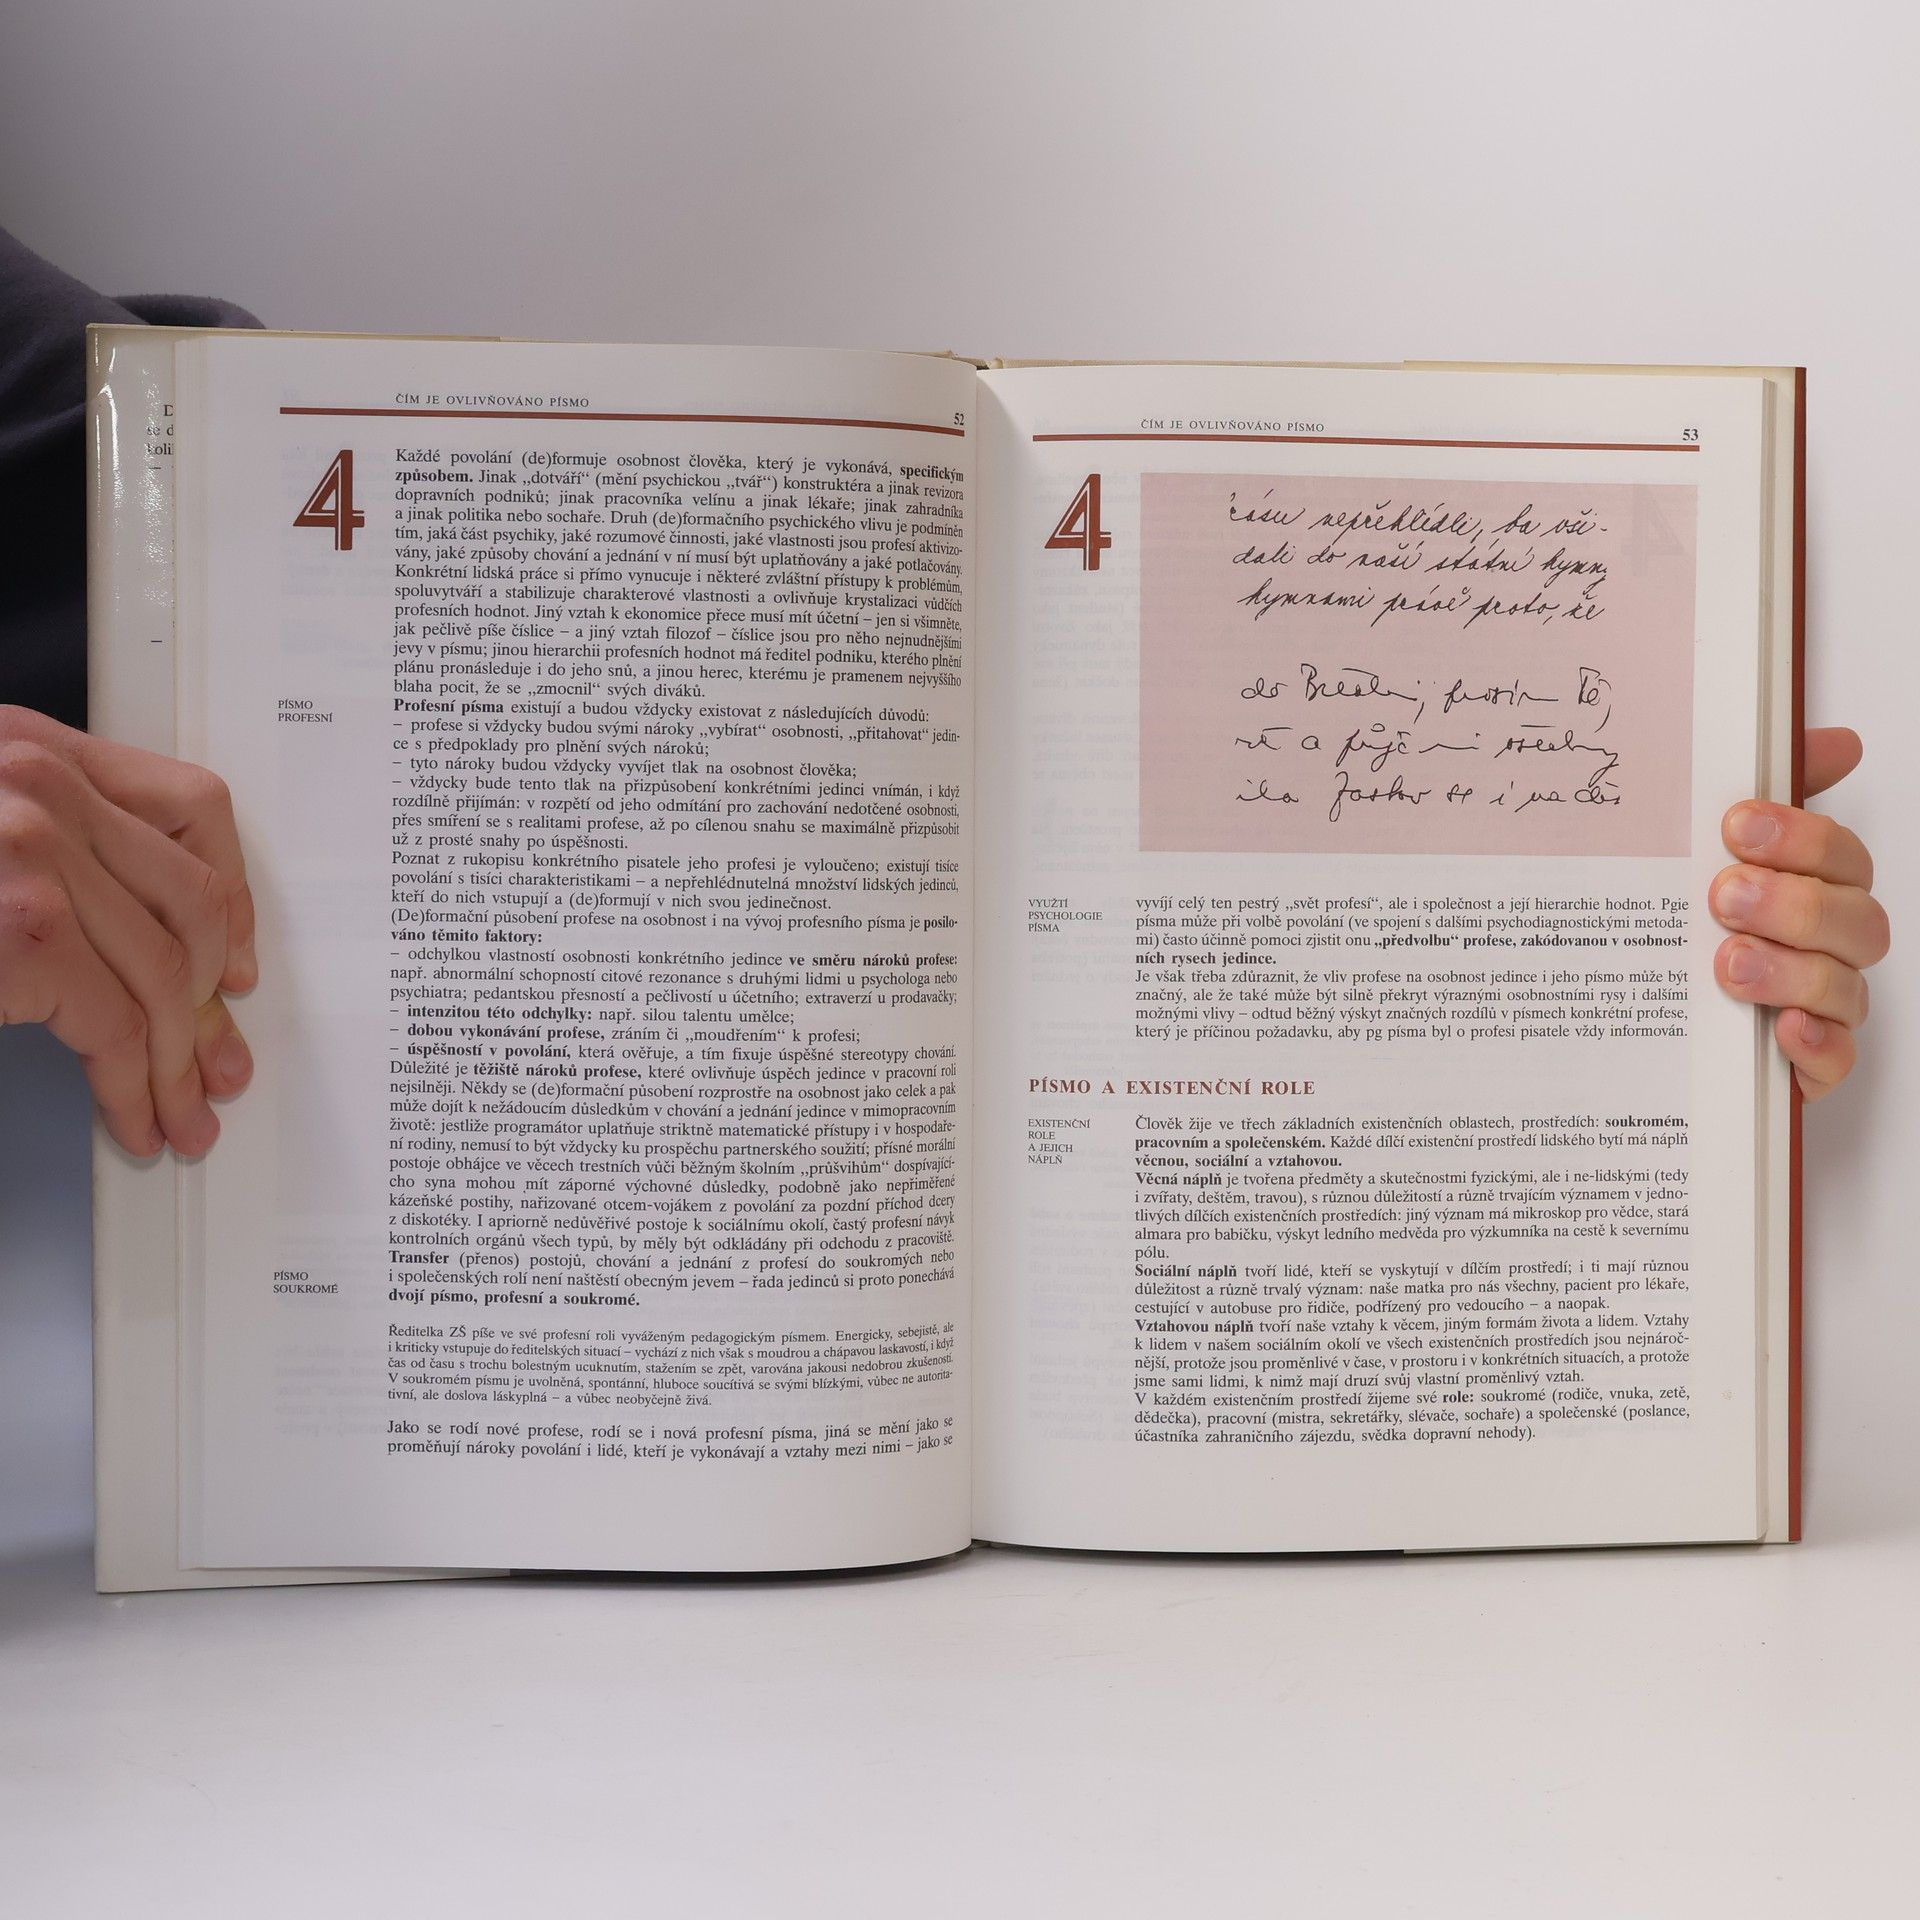 D
se d
koli
ČÍM JE OVLIVŇOVÁNO PÍSMO
52
4
Každé povolání (de)formuje osobnost člověka, který je vykonává, specifickým
způsobem. Jinak „dotváří“ (mění psychickou „tvář“) konstruktéra a jinak revizora
dopravních podniků; jinak pracovníka velínu a jinak lékaře; jinak zahradníka
a jinak politika nebo sochaře. Druh (de)formačního psychického vlivu je podmíněn
tím, jaká část psychiky, jaké rozumové činnosti, jaké vlastnosti jsou profesí aktivizo-
vány, jaké způsoby chování a jednání v ní musí být uplatňovány a jaké potlačovány.
Konkrétní lidská práce si přímo vynucuje i některé zvláštní přístupy k problémům,
spoluvytváří a stabilizuje charakterové vlastnosti a ovlivňuje krystalizaci vůdčích
profesních hodnot. Jiný vztah k ekonomice přece musí mít účetní – jen si všimněte,
jak pečlivě píše číslice – a jiný vztah filozof – číslice jsou pro něho nejnudnějšími
jevy v písmu; jinou hierarchii profesních hodnot má ředitel podniku, kterého plnění
plánu pronásleduje i do jeho snů, a jinou herec, kterému je pramenem nejvyššího
blaha pocit, že se „zmocnil“ svých diváků.
PÍSMO
PROFESNÍ
Profesní písma existují a budou vždycky existovat z následujících důvodů:
– profese si vždycky budou svými nároky „vybírat“ osobnosti, „přitahovat“ jedin-
ce s předpoklady pro plnění svých nároků;
– tyto nároky budou vždycky vyvíjet tlak na osobnost člověka;
– vždycky bude tento tlak na přizpůsobení konkrétními jedinci vnímán, i když
rozdílně přijímán: v rozpětí od jeho odmítání pro zachování nedotčené osobnosti,
přes smíření se s realitami profese, až po cílenou snahu se maximálně přizpůsobit
už z prosté snahy po úspěšnosti.
Poznat z rukopisu konkrétního pisatele jeho profesi je vyloučeno; existují tisíce
povolání s tisíci charakteristikami – a nepřehlédnutelná množství lidských jedinců,
kteří do nich vstupují a (de)formují v nich svou jedinečnost.
(De)formační působení profese na osobnost i na vývoj profesního písma je posilo-
váno těmito faktory:
– odchylkou vlastností osobnosti konkrétního jedince ve směru nároků profese:
např. abnormální schopností citové rezonance s druhými lidmi u psychologa nebo
psychiatra; pedantskou přesností a pečlivostí u účetního; extraverzí u prodavačky;
– intenzitou této odchylky: např. silou talentu umělce;
– dobou vykonávání profese, zráním či „moudřením“ k profesi;
– úspěšností v povolání, která ověřuje, a tím fixuje úspěšné stereotypy chování.
Důležité je těžiště nároků profese, které ovlivňuje úspěch jedince v pracovní roli
nejsilněji. Někdy se (de)formační působení rozprostře na osobnost jako celek a pak
může dojít k nežádoucím důsledkům v chování a jednání jedince v mimopracovním
životě: jestliže programátor uplatňuje striktně matematické přístupy i v hospodaře-
ní rodiny, nemusí to být vždycky ku prospěchu partnerského soužití; přísné morální
postoje obhájce ve věcech trestních vůči běžným školním „průšvihům“ dospívající-
cho syna mohou mít záporné výchovné důsledky, podobně jako nepřiměřené
kázeňské postihy, nařizované otcem-vojákem z povolání za pozdní příchod dcery
z diskotéky. I apriorně nedůvěřivé postoje k sociálnímu okolí, častý profesní návyk
kontrolních orgánů všech typů, by měly být odkládány při odchodu z pracoviště.
PÍSMO
SOUKROMÉ
Transfer (přenos) postojů, chování a jednání z profesí do soukromých nebo
i společenských rolí není naštěstí obecným jevem – řada jedinců si proto ponechává
dvojí písmo, profesní a soukromé.
Ředitelka ZŠ píše ve své profesní roli vyváženým pedagogickým písmem. Energicky, sebejistě, ale
i kriticky vstupuje do ředitelských situací – vychází z nich však s moudrou a chápavou laskavostí, i když
čas od času s trochu bolestným ucuknutím, stažením se zpět, varována jakousi nedobrou zkušeností.
V soukromém písmu je uvolněná, spontánní, hluboce soucítivá se svými blízkými, vůbec ne autorita-
tivní, ale doslova láskyplná – a vůbec neobyčejně živá.
Jako se rodí nové profese, rodí se i nová profesní písma, jiná se mění jako se
proměňují nároky povolání i lidé, kteří je vykonávají a vztahy mezi nimi – jako se
ČÍM JE OVLIVŇOVÁNO PÍSMO
53
4
času nepřehlídli, ba vši-
dali do naší státní hymny
hymnami právě proto, že
do Břežan, prosím Tě,
a půjč mi všechny
se i na
VYUŽTÍ
PSYCHOLOGIE
PÍSMA
vyvíjí celý ten pestrý „svět profesí“, ale i společnost a její hierarchie hodnot. Pgie
písma může při volbě povolání (ve spojení s dalšími psychodiagnostickými metoda-
mi) často účinně pomoci zjistit onu „předvolbu“ profese, zakódovanou v osobnost-
ních rysech jedince.
Je však třeba zdůraznit, že vliv profese na osobnost jedince i jeho písmo může být
značný, ale že také může být silně překryt výraznými osobnostními rysy i dalšími
možnými vlivy – odtud běžný výskyt značných rozdílů v písmech konkrétní profese,
který je příčinou požadavku, aby pg písma byl o profesi pisatele vždy informován.
PÍSMO A EXISTENČNÍ ROLE
EXISTENČNÍ
ROLE
A JEJICH
NÁPLŇ
Člověk žije ve třech základních existenčních oblastech, prostředích: soukromém,
pracovním a společenském. Každé dílčí existenční prostředí lidského bytí má náplň
věcnou, sociální a vztahovou.
Věcná náplň je tvořena předměty a skutečnostmi fyzickými, ale i ne-lidskými (tedy
i zvířaty, deštěm, travou), s různou důležitostí a různě trvajícím významem v jedno-
tlivých dílčích existenčních prostředích: jiný význam má mikroskop pro vědce, stará
almara pro babičku, výskyt ledního medvěda pro výzkumníka na cestě k severnímu
pólu.
Sociální náplň tvoří lidé, kteří se vyskytují v dílčím prostředí; i ti mají různou
důležitost a různě trvalý význam: naše matka pro nás všechny, pacient pro lékaře,
cestující v autobuse pro řidiče, podřízený pro vedoucího – a naopak.
Vztahovou náplň tvoří naše vztahy k věcem, jiným formám života a lidem. Vztahy
k lidem v našem sociálním okolí ve všech existenčních prostředích jsou nejnároč-
nější, protože jsou proměnlivé v čase, v prostoru i v konkrétních situacích, a protože
jsme sami lidmi, k nimž mají druzí svůj vlastní proměnlivý vztah.
V každém existenčním prostředí žijeme své role: soukromé (rodiče, vnuka, zetě,
dědečka), pracovní (mistra, sekretářky, slévače, sochaře) a společenské (poslance,
účastníka zahraničního zájezdu, svědka dopravní nehody).